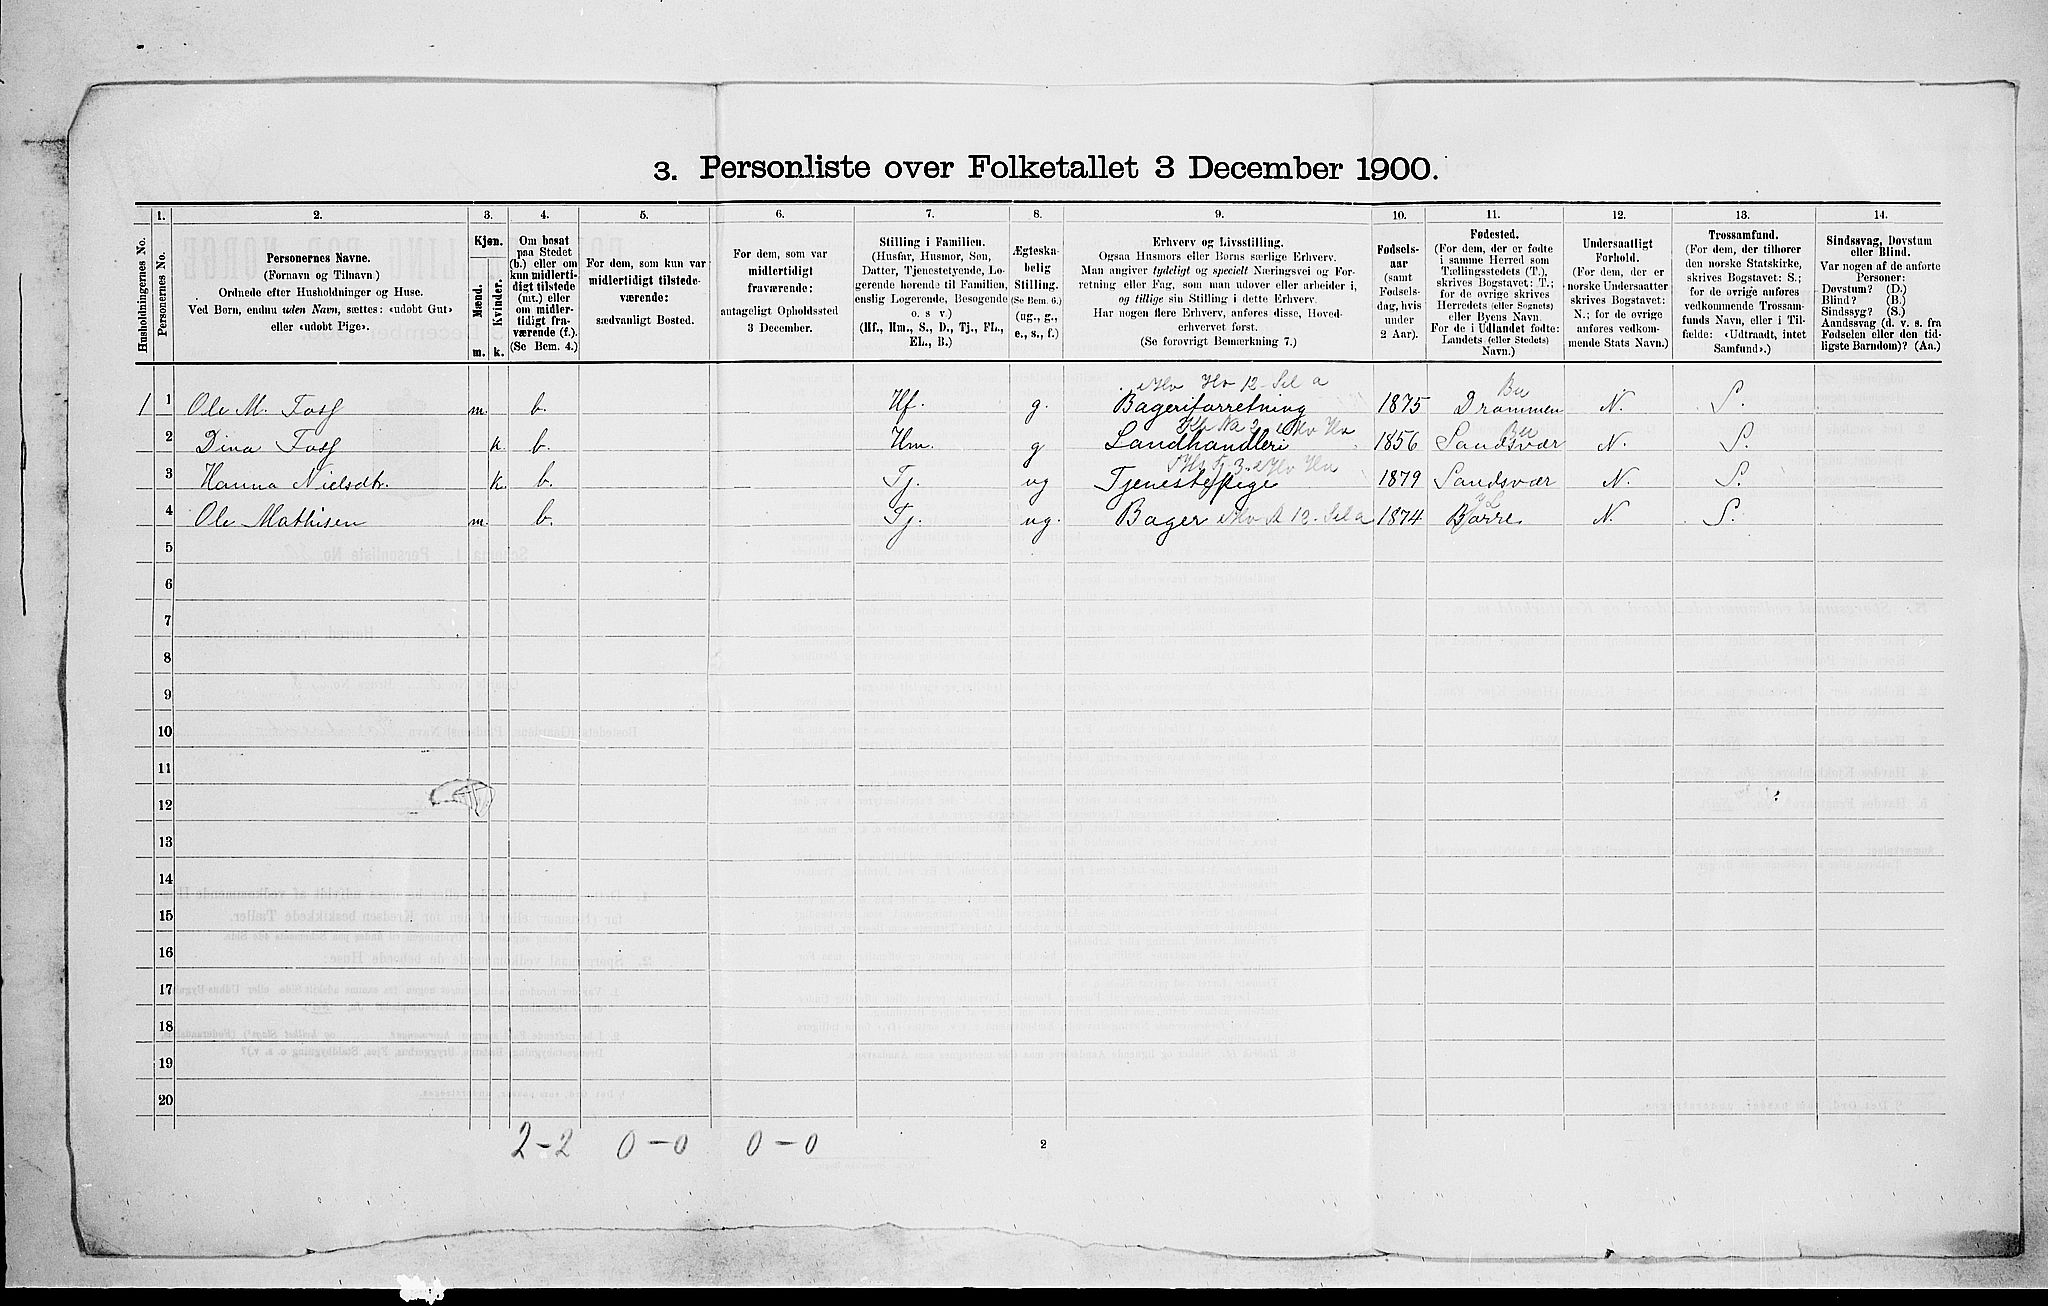 3. Personliste over Folketallet 3 December 1900.
1. 2. 3. 4. 5. 6. 7. 8. 9. 10. 11. 12. 13. 14.
Husholdningernes No.
Personernes No.
Personernes Navne.
(Fornavn og Tilnavn.)
Ordnede efter Husholdninger og Huse.
Ved Børn, endnu uden Navn, sættes: «udøbt Gut»
eller «udøbt Pige».
Kjøn.
Mænd.
Kvinder.
m. k.
Om bosat
paa Stedet
(b.) eller om
kun midlerti-
digt tilstede
(mt.) eller
om midler-
tidigt fra-
værende (f.).
(Se Bem. 4.)
For dem, som kun var
midlertidigt tilstede-
værende:
sædvanligt Bosted.
For dem, som var
midlertidigt
fraværende:
antageligt Opholdssted
3 December.
Stilling i Familien.
(Husfar, Husmor, Søn,
Datter, Tjenestetyende, Lo-
gerende hørende til Familien,
enslig Logerende, Besøgende
o. s v)
(Hf., Hm., S., D., Tj., FL.,
EL., B.)
Ægteska-
belig
Stilling.
(Se Bem. 6.)
(ug., g.,
e., s., f.)
Erhverv og Livsstilling.
Ogsaa Husmors eller Børns særlige Erhverv.
Man angiver tydeligt og specielt Næringsvei og For-
retning eller Fag, som man udøver eller arbeider i,
og tillige sin Stilling i dette Erhverv.
Har nogen flere Erhverv, anføres disse, Hoved-
erhvervet først.
(Se forøvrigt Bemærkning 7.)
Fødsels-
aar
(samt
Fødsels-
dag, hvis
under
2 Aar).
Fødested.
(For dem, der er fødte
i samme Herred som
Tællingsstedets (T.),
skrives Bogstavet: T.;
for de øvrige skrives
Herredets (eller Sognets)
eller Byens Navn.
For de i Udlandet fødte:
Landets (eller Stedets)
Navn.)
Undersaatligt
Forhold.
(For dem, der er
norske Undersaatter
skrives Bogstavet:
N.; for de øvrige
anføres vedkom-
mende Stats Navn.)
Trossamfund.
(For dem, der tilhører
den norske Statskirke,
skrives Bogstavet: S.;
for de øvrige anføres
vedkommende Trossam-
funds Navn, eller i Til-
fælde: «Udtraadt, intet
Samfund».)
Sindssvag, Døvstum
eller Blind.
Var nogen af de anførte
Personer:
Døvstum? (D.)
Blind? (B.)
Sindssyg? (S.)
Aandssvag (d. v. s. fra
Fødselen eller den tid-
ligste Barndom)? (Aa.)
1 1 Ole M. Foss m. b. Hf. g. Bageriforretning 1875 Drammen N. S.
2 Dina Foss k. b. Hm. g Landhandleri 1856 Sandsvær N. S.
3 Hanna Nielsdtr. k. b. Tj. ug Tjenestepige 1879 Sandsvær N. S.
4 Ole Mathisen m. b. Tj. ug. Bager 1874 Borre N. S.
5
6
7
8
9
10
11
12
13
14
15
16
17
18
19
20
2-2 0-0 0-0 2